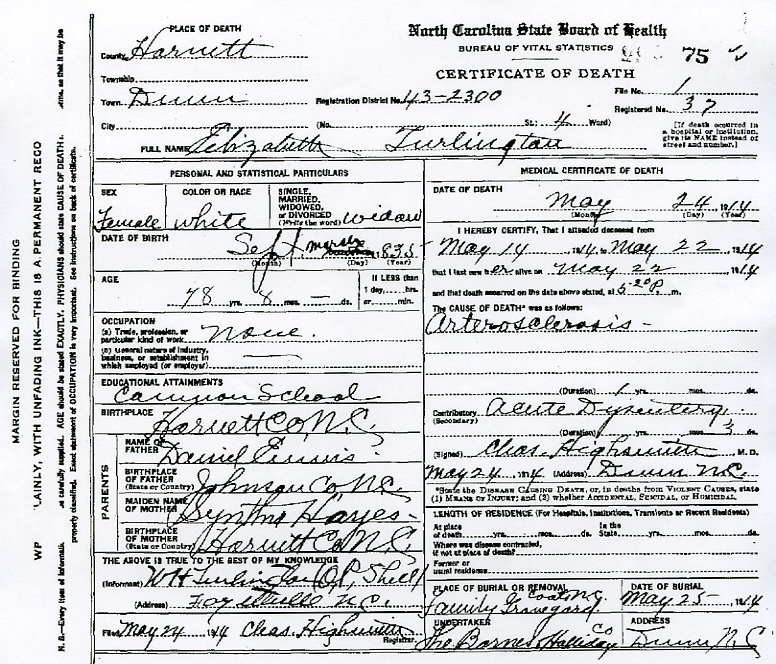 North Carolina State Board of Health
BUREAU OF VITAL STATISTICS
75
CERTIFICATE OF DEATH
PLACE OF DEATH
County Harnett
Township
Town Dunn
Registration District No. 43-2300
File No. 1
Registered No. 37
City
(No. St.; 4 Ward)
[If death occurred in a hospital or institution, give its NAME instead of street and number.]
FULL NAME Elizabeth Turlington
PERSONAL AND STATISTICAL PARTICULARS
SEX
Female
COLOR OR RACE
white
SINGLE, MARRIED, WIDOWED, or DIVORCED
(Write the word) widow
DATE OF BIRTH
Sept 1835
(Month) (Day) (Year)
AGE
78 yrs. 8 mos. — ds.
If LESS than
1 day,.....hrs.
or.....min.
OCCUPATION
(a) Trade, profession, or
particular kind of work None
(b) General nature of industry,
business, or establishment in
which employed (or employer)
EDUCATIONAL ATTAINMENTS
Common School
BIRTHPLACE
Harnett Co N.C.
PARENTS
NAME OF FATHER
Daniel Ennis
BIRTHPLACE OF FATHER
(State or Country) Johnson Co N.C.
MAIDEN NAME OF MOTHER
Hayes
BIRTHPLACE OF MOTHER
(State or Country) Harnett Co N.C.
THE ABOVE IS TRUE TO THE BEST OF MY KNOWLEDGE
(Informant) W H Turlington
(Address) N.C.
Filed May 24 1914 Chas. Highsmith
Registrar
MEDICAL CERTIFICATE OF DEATH
DATE OF DEATH
May 24 1914
(Month) (Day) (Year)
I HEREBY CERTIFY, That I attended deceased from
May 14 1914 to May 22 1914
that I last saw her alive on May 22 1914
and that death occurred on the date above stated, at 5-20 P. m.
The CAUSE OF DEATH* was as follows:
Arterosclerosis -
(Duration) 1 yrs. mos. ds.
Contributory Acute Dysentery
(Secondary)
(Duration) yrs. mos. 3 ds.
(Signed) Chas. Highsmith M. D.
May 24 1914 (Address) Dunn N.C.
*State the DISEASE CAUSING DEATH, or, in deaths from VIOLENT CAUSES, state
(1) MEANS OF INJURY; and (2) whether ACCIDENTAL, SUICIDAL, or HOMICIDAL.
LENGTH OF RESIDENCE (For Hospitals, Institutions, Transients or Recent Residents)
At place of death......yrs......mos......ds. In the State......yrs......mos......ds.
Where was disease contracted,
if not at place of death?
Former or
usual residence
PLACE OF BURIAL OR REMOVAL
Coats N.C.
Family Graveyard
DATE OF BURIAL
May 25 1914
UNDERTAKER
The Barnes & Holliday Co
ADDRESS
Dunn N.C.
MARGIN RESERVED FOR BINDING
LAINLY, WITH UNFADING INK—THIS IS A PERMANENT RECO
N. B.—Every item of informati carefully supplied. AGE should be stated EXACTLY. PHYSICIANS should state CAUSE OF DEATH so that it may be
properly classified. Exact statement of OCCUPATION is very important. See instructions on back of certificate.